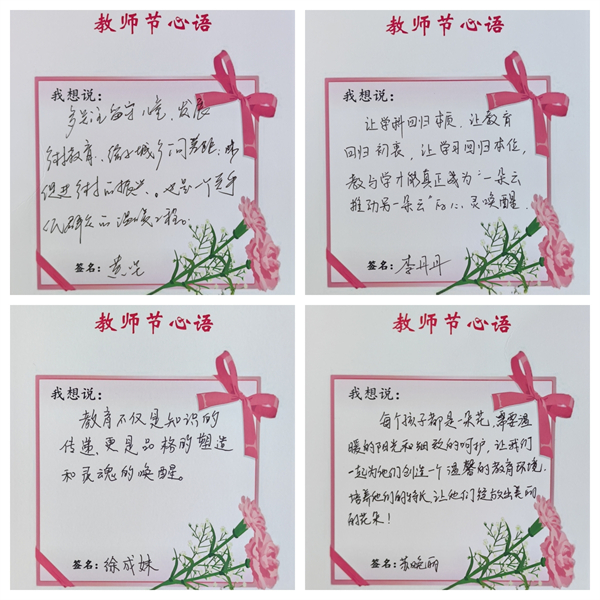 教师节心语
我想说：
多关注留守儿童，发展
乡村教育，缩小城乡
促进乡村的振兴。也是一个关乎
签名：
教师节心语
我想说：
让学科回归本质，让教育
回归初衷，让学习回归本位，
教与学才能真正成为“一朵云
推动另一朵云” 灵唤醒。
签名：李丹丹
教师节心语
我想说：
教育不仅是知识的
传递，更是品格的塑造
和灵魂的唤醒。
签名：徐成妹
教师节心语
我想说：
每个孩子都是一朵花，需要温
暖的阳光和细致的呵护，让我们
一起为他们创造一个温馨的教育环境，
培养他们的特长，让他们绽放出美丽
的花朵！
签名：苏晚丽